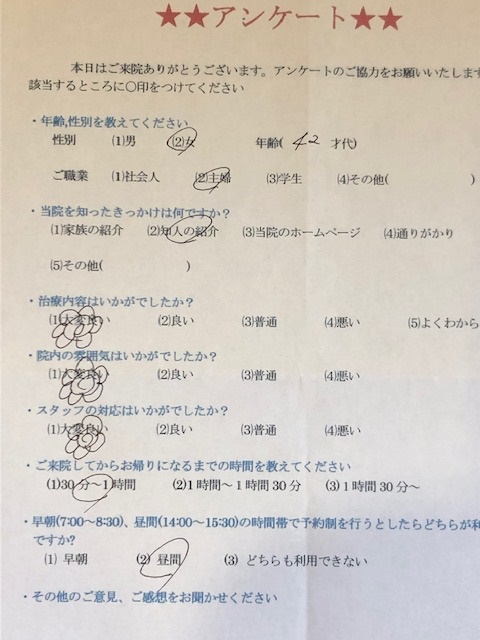 ★★アンケート★★
本日はご来院ありがとうございます。アンケートのご協力をお願いいたします
該当するところに〇印をつけてください
・年齢,性別を教えてください
性別 (1)男 (2)女 年齢( 42 才代)
ご職業 (1)社会人 (2)主婦 (3)学生 (4)その他( )
・当院を知ったきっかけは何ですか？
(1)家族の紹介 (2)知人の紹介 (3)当院のホームページ (4)通りがかり
(5)その他( )
・治療内容はいかがでしたか？
(1)大変良い (2)良い (3)普通 (4)悪い (5)よくわから
・院内の雰囲気はいかがでしたか？
(1)大変良い (2)良い (3)普通 (4)悪い
・スタッフの対応はいかがでしたか？
(1)大変良い (2)良い (3)普通 (4)悪い
・ご来院してからお帰りになるまでの時間を教えてください
(1)30分～1時間 (2)1時間～1時間30分 (3)1時間30分～
・早朝(7:00～8:30)、昼間(14:00～15:30)の時間帯で予約制を行うとしたらどちらが利
ですか?
(1) 早朝 (2) 昼間 (3) どちらも利用できない
・その他のご意見、ご感想をお聞かせください